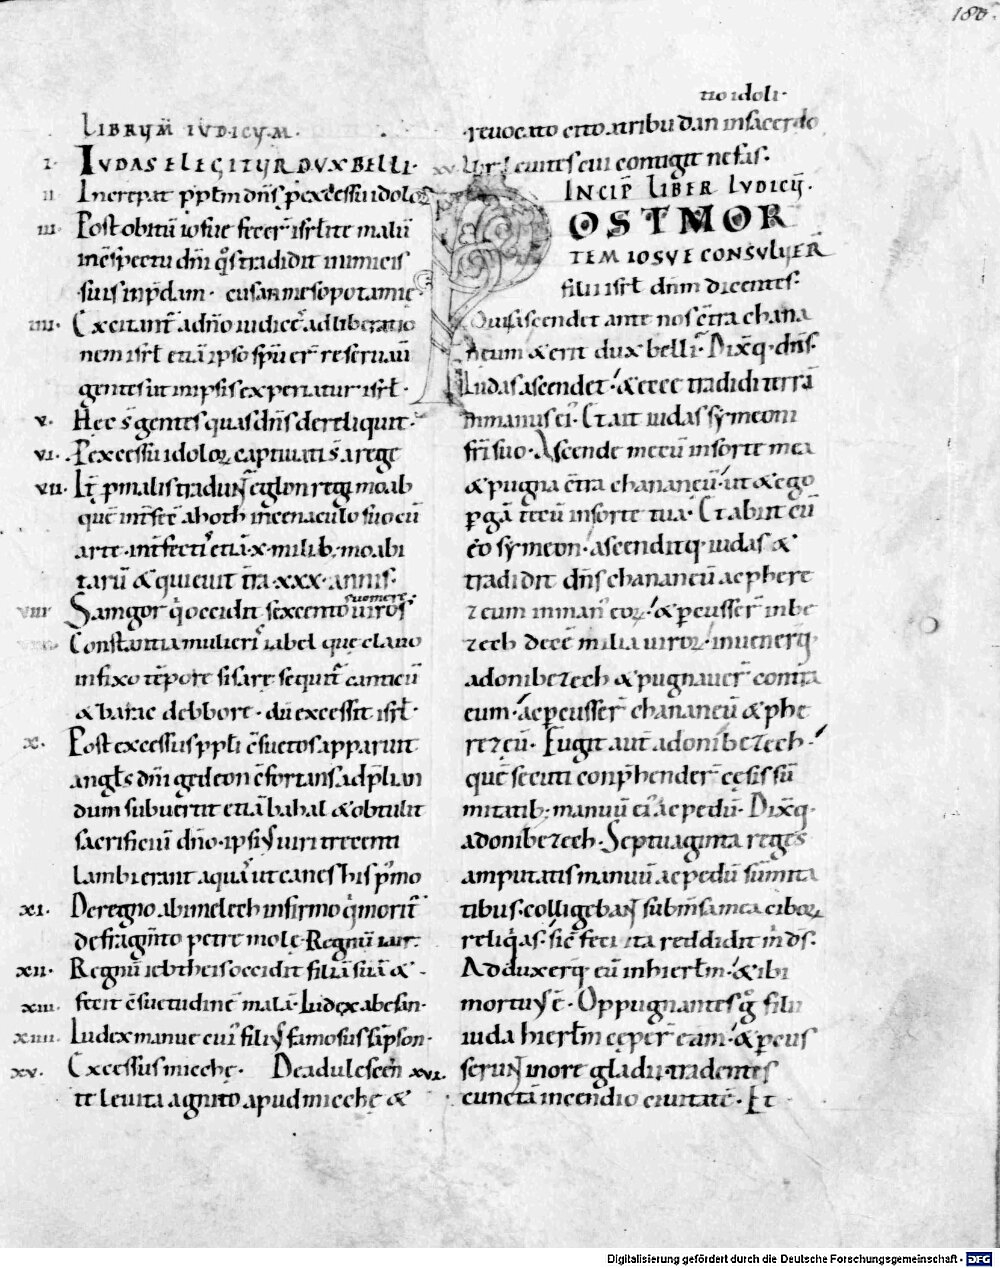 180.
LIBRVM IVDICVM.
I. IVDAS ELEGITVR DVX BELLI.
II Increpat ppłm dn̄s p excessū idolo
III. Post obitū iosue fecer̄ isrł'ite malū
in c̄spectu dn̄i q̊s tradidit inimicis
suis in p̄dam. cusan mesopotamię
IIII. Excitant̄ a dn̄o iudices ad liberatio
nem isrł etiā ipso sp̄u er̄ reseruaū
gentes ut in ipsis experiatur isrł.
V. Hęc s̄ gentes quas dn̄s dereliquit.
VI. P excessū idoloꝝ captiuati s̄ a rege
VII. It̄ p malis tradunt̄ eglon regi moab
quē int̄fecit ahoth in cenaculo suo cū
arte. int̄fecti s̄ etiā .x. milib; moabi
tarū & quieuit t̄ra .xxx. annis.
VIII Samgor q̊ occidit sexcentos uiros
uomere.
Constantia mulieris iahel que clauo
infixo tēpore sisare sequit̄ canticū
& barac debbore. dū excessit isrł.
X. Post excessus ppłi c̄suetos apparuit
angl̄s dn̄i gedeon c̄fortans ad p̄lian
dum subuertit etiā bahal & obtulit
sacrificiū dn̄o. ipsius uiri trecenti
lambierant aquas ut canes his p̄mo
XI. De regno abimelech infirmo q̊ morit̄
de fragm̄to petre mole. Regnū iair.
XII. Regnū iebthe is occidit filiā suā &
XIII. fecit c̄suetudinē malā. Iudex abesan.
XIIII. Iudex manue cui' filius famosus sāpson.
XV. Excessus michę. De adulescen XVI.
te leuita agnito apud miche &
tio idoli.
reuocato cito a tribu dan in sacerdo
INCIP̄ LIBER IVDICŪ.
POST MOR
TEM IOSVE CONSVLVER̄
filii isrł dn̄m dicentes.
Quis ascendet ante nos c̄tra chana
neum & erit dux belli? Dixitq. dn̄s.
Iudas ascendet. & ecce tradidi terrā
in manus ei'. Et ait iudas symeoni
fr̄i suo. Ascende mecū in sorte mea
& pugna c̄tra chananeū. ut & ego
pergā tecū in sorte tua. Et abiit cū
eo symeon. ascenditq. iudas &
tradidit dn̄s chananeū ac phere
zeum in man' eoꝝ. & percusser̄ in be
zech decē milia uiroꝝ. inueneruntq.
adonibezech & pugnauer̄ contra
eum. ac percusser̄ chananeū & phe
rezeū. Fugit aut̄ adonibezech.
quē secuti conp̄hender̄ cęsis sū
mitatib; manuū ei' ac pedū. Dixitq.
adonibezech. Septuaginta reges
amputatis manuū ac pedū sūmita
tibus. colligebant sub mensa mea ciboꝝ
reliquias. sic̄ feci ita reddidit m̄ ds̄.
Adduxeruntq. eū in hierłm. & ibi
mortuus ē. Oppugnantes g̊ filii
iuda hierłm cęper̄ eam. & percus
serunt in ore gladii. tradentes
cunctā incendio ciuitatē. Et
Digitalisierung gefördert durch die Deutsche Forschungsgemeinschaft - DFG